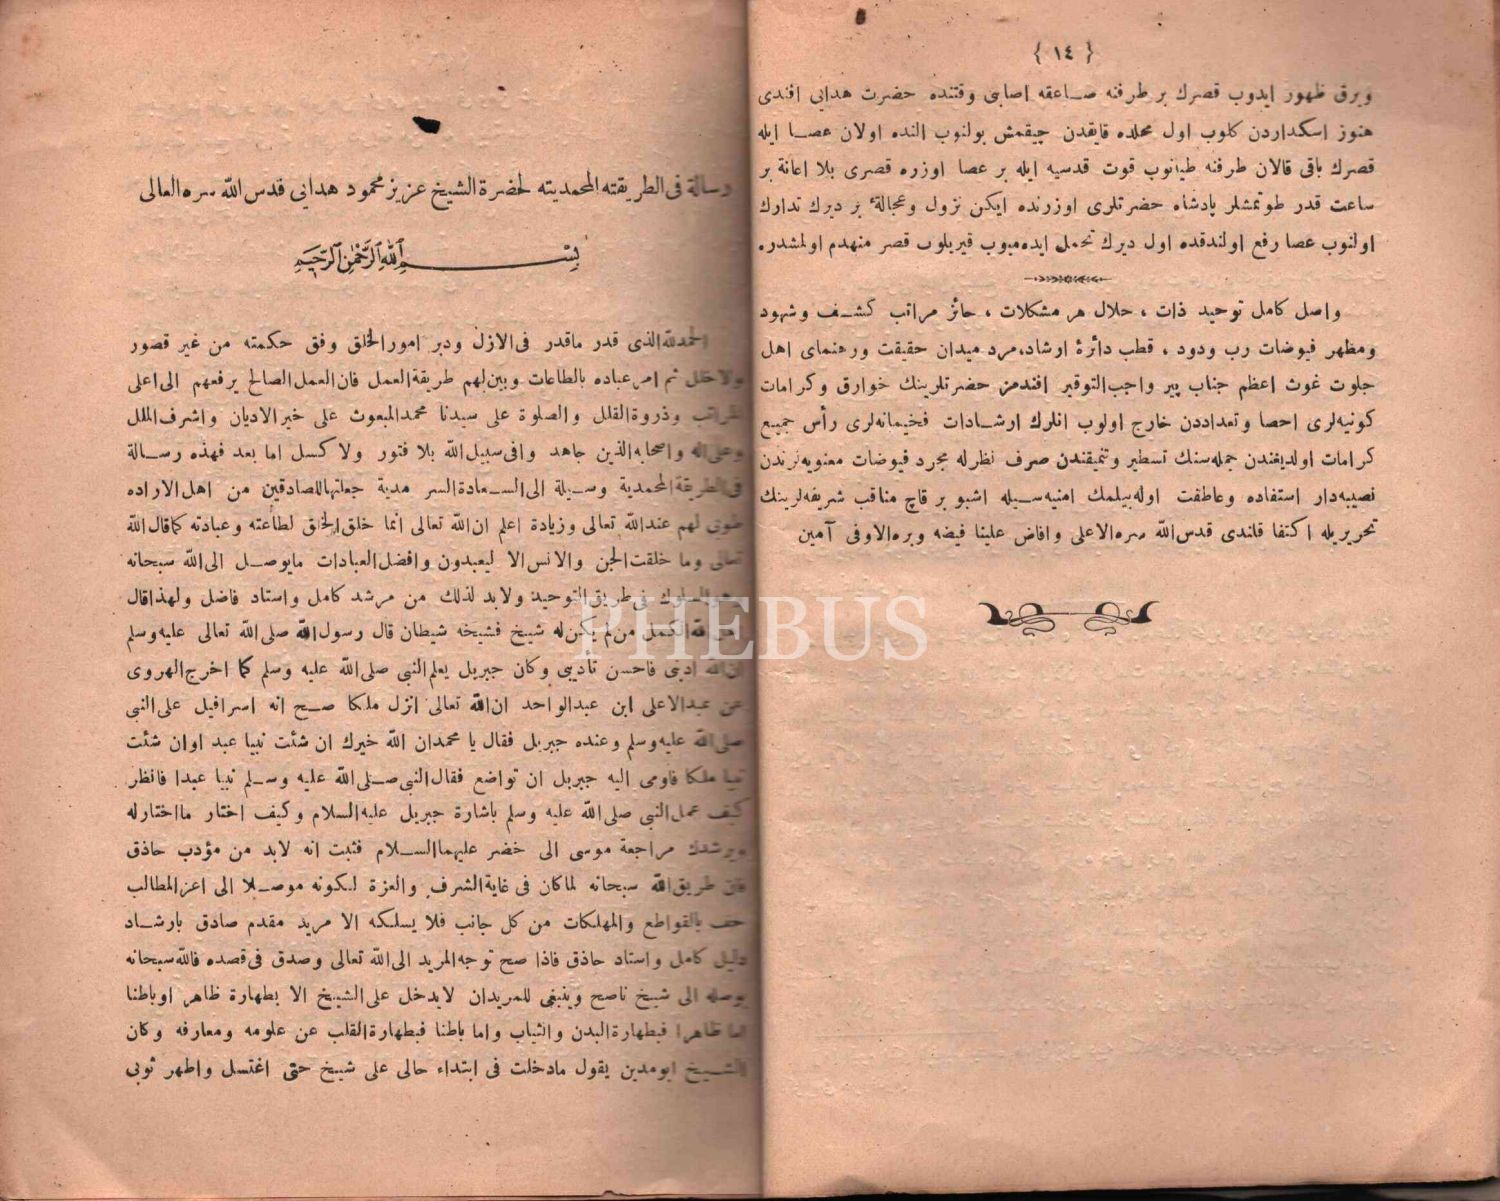 { ١٤ }
وبرق ظهور ايدوب قصرك بر طرفنه صاعقه اصابى وقتنده حضرت هدايى افندى
هنوز اسكداردن كلوب اول محلده قايقدن چيقمش بولنوب النده اولان عصا ايله
قصرك باقى قالان طرفنه طيانوب قوت قدسيه ايله بر عصا اوزره قصرى بلا اعانة بر
ساعت قدر طوتمشلر پادشاه حضرتلرى اوزرنده ايكن نزول وعجالةً بر ديرك تدارك
اولنوب عصا رفع اولندقده اول ديرك تحمل ايده ميوب قيريلوب قصر منهدم اولمشدره
واصل كامل توحيد ذات ، حلال هر مشكلات ، حائز مراتب كشف وشهود
ومظهر فيوضات رب ودود ، قطب دائرۀ ارشاد، مرد ميدان حقيقت ورهنماى اهل
جلوت غوث اعظم جناب پير واجب التوقير افندمز حضرتلرينك خوارق وكرامات
كونيه لرى احصا وتعداددن خارج اولوب انلرك ارشادات فخيمانه لرى رأس جميع
كرامات اولديغندن جمله سنك تسطير وتنميقندن صرف نظرله مجرد فيوضات معنويه لرندن
نصيبه دار استفاده وعاطفت اوله بيلمك امنيه سيله اشبو بر قاچ مناقب شريفه لرينك
تحريريله اكتفا قلندى قدس الله سره الاعلى وافاض علينا فيضه وبره الاوفى آمين
رسالة فى الطريقته المحمديته لحضرة الشيخ عزيز محمود هدايى قدس الله سره العالى
بسم الله الرحمن الرحيم
الحمد لله الذى قدر ماقدر فى الازل ودبر امور الخلق وفق حكمته من غير قصور
ولا خلل ثم امر عباده بالطاعات وبين لهم طريقة العمل فان العمل الصالح يرفعهم الى اعلى
المراتب وذروة القلل والصلوة على سيدنا محمد المبعوث على خير الاديان واشرف الملل
وعلى اله واصحابه الذين جاهد وافى سبيل الله بلا فتور ولا كسل اما بعد فهذه رسالة
فى الطريقة المحمدية وسيلة الى السعادة السر مدية جعلتها للصادقين من اهل الاراده
طوبى لهم عند الله تعالى وزيادة اعلم ان الله تعالى انما خلق الخلق لطاعته وعبادته كما قال الله
تعالى وما خلقت الجن والانس الا ليعبدون وافضل العبادات مايوصل الى الله سبحانه
السلوك فى طريق التوحيد ولابد لذلك من مرشد كامل واستاد فاضل ولهذا قال
الكمل من لم يكن له شيخ فشيخه شيطان قال رسول الله صلى الله تعالى عليه وسلم
ان الله ادبنى فاحسن تاديبى وكان جبريل يعلم النبى صلى الله عليه وسلم كما اخرج الهروى
عن عبد الاعلى ابن عبد الواحد ان الله تعالى انزل ملكا صح انه اسرافيل على النبى
صلى الله عليه وسلم وعنده جبريل فقال يا محمدان الله خيرك ان شئت نبيا عبد اوان شئت
نبيا ملكا فاومى اليه جبريل ان تواضع فقال النبى صلى الله عليه وسلم نبيا عبدا فانظر
كيف عمل النبى صلى الله عليه وسلم باشارة جبريل عليه السلام وكيف اختار مااختارله
ويرشدك مراجعة موسى الى خضر عليهما السلام فثبت انه لابد من مؤدب حاذق
فان طريق الله سبحانه لما كان فى غاية الشرف والعزة لكونه موصلا الى اعز المطالب
حف بالقواطع والمهلكات من كل جانب فلا يسلكه الا مريد مقدم صادق بارشاد
دليل كامل واستاد حاذق فاذا صح توجه المريد الى الله تعالى وصدق فى قصده فالله سبحانه
يوصله الى شيخ ناصح وينبغى للمريدان لايدخل على الشيخ الا بطهارة ظاهر اوباطنا
اما ظاهرا فبطهارة البدن والثياب واما باطنا فبطهارة القلب عن علومه ومعارفه وكان
الشيخ ابومدين يقول مادخلت فى ابتداء حالى على شيخ حتى اغتسل واطهر ثوبى
PHEBUS